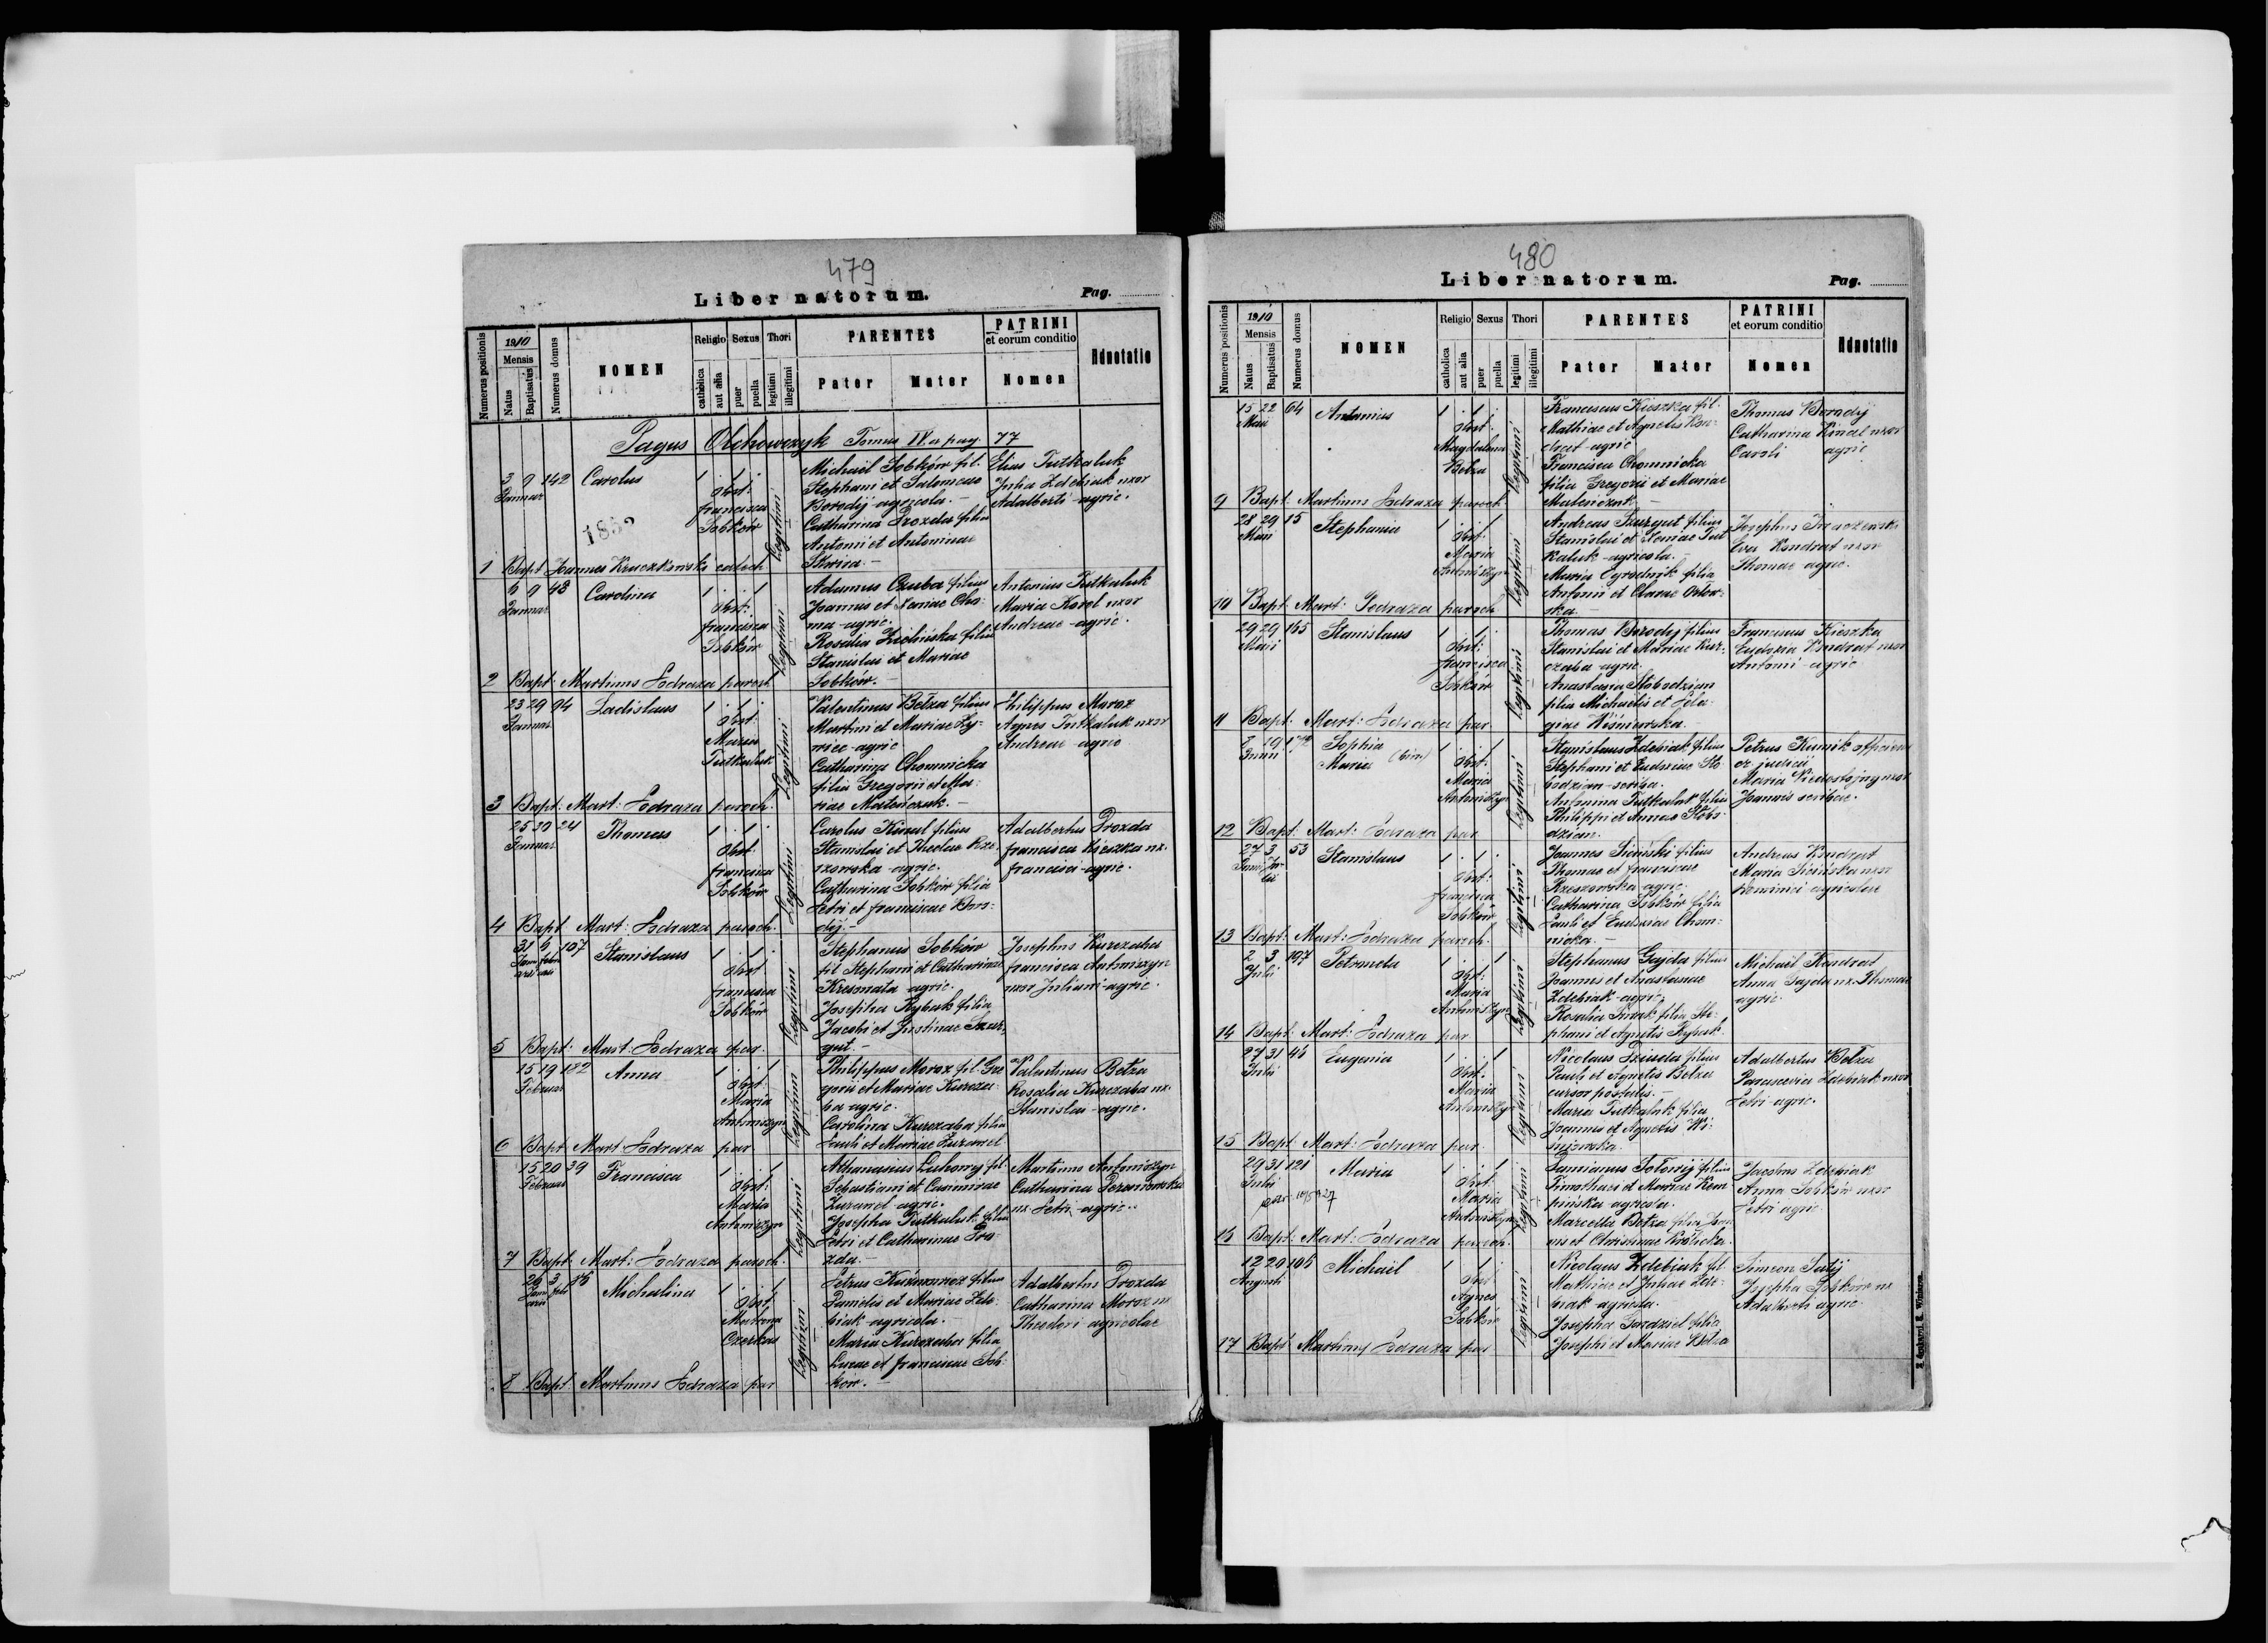 479
Liber natorum.
Pag.
Numerus positionis
1910
Mensis
Natus
Baptisatus
Numerus domus
NOMEN
Religio
catholica
aut alia
Sexus
puer
puella
Thori
legitimi
illegitimi
PARENTES
Pater
Mater
PATRINI
et eorum conditio
Nomen
Adnotatio
Pagus Olchowczyk Tomus IV. a pag. 77
3 9 142 Carolus
Januar
Obst:
francisca
Sobków
Legitimi
Michaël Sobków fil.
Stephani et Salomeae
Borodij agricola.
Catharina Drozda filia
Antonii et Antoninae
Elias Tutkaluk
Julia Zdebiak uxor
Adalberti agric.
1 Bapt Joannes Kruczkowski cooloch
6 9 48 Carolina
Januar
Obst:
francisca
Sobków
Legitimi
Adamus Czuba filius
Joannis et Xeniae Cho-
ma agric.
Rosalia Zielińska filia
Stanislai et Mariae
Sobków.
Antonius Tutkaluk
Maria Karol uxor
Andreae agric.
2 Bapt: Martinus Pedraza paroch
23 29 94 Ladislaus
Januar
Obst:
Maria
Tutkaluk
Legitimi
Valentinus Betza filius
Martini et Mariae
agric
Catharina Chomnicka
filia Gregorii et Ma-
riae Matończuk.
Philippus Moroz
Agnes Tutkaluk uxor
Andreae agric
3 Bapt: Mart: Pedraza paroch.
25 30 24 Thomas
Januar
Obst:
francisca
Sobków
Legitimi
Carolus Kinal filius
Stanislai et Theclae Rze-
szowska agric.
Catharina Sobków filia
Petri et franciscae Boro-
dij.
Adalbertus Drozda
francisca Kieszka ux.
francisci agric.
4 Bapt Mart: Pedraza paroch.
31 6 107 Stanislaus
Obst
francisca
Sobków
Legitimi
Stephanus Sobków
fil Stephani et Catharinae
Kresmata agric.
Josepha Rybak filia
Jacobi et Justinae Szur-
gut.
Josephus Kurczaba
francisca Antoniszyn
uxor Juliani agric.
5 Bapt: Mart: Pedraza par.
15 19 182 Anna
Februar
Obst:
Maria
Antoniszyn
Legitimi
Philippus Moroz fil. Gre
gorii et Mariae Kurcza-
ba agric.
Carolina Kurczaba filia
Pauli et Mariae
Valentinus Betza
Rosalia Kurczaba ux.
Stanislai agric.
6 Bapt Mart Pedraza par
15 20 39 Francisca
Februar
Obst:
Maria
Antoniszyn
Legitimi
Athanasius fil.
Sebastiani et Casimirae
agric.
Josepha Tutkaluk filia
Petri et Catharinae Dro-
zda.
Martinus Antoniszyn
Catharina
ux. Petri agric.
7 Bapt: Mart: Pedraza paroch.
26 3 Michalina
Obst
Matrona
Czerkas
Legitimi
Petrus filius
Danielis et Mariae Zde-
biak agricola.
Maria Kurczaba filia
Lucae et franciscae Sob-
ków.
Adalbertus Drozda
Catharina Moroz ux
Theodori agricolae
8 Bapt: Martinus Pedraza par
480
Liber natorum.
Pag.
Numerus positionis
1910
Mensis
Natus
Baptisatus
Numerus domus
NOMEN
Religio
catholica
aut alia
Sexus
puer
puella
Thori
legitimi
illegitimi
PARENTES
Pater
Mater
PATRINI
et eorum conditio
Nomen
Adnotatio
15 22 64 Antonius
Maii
Obst:
Magdalena
Betza
Legitimi
Franciscus Kieszka fil.
Mathiae et Agnetis Kon-
drat agric
Francisca Chomnicka
filia Gregorii et Mariae
Matończuk
Thomas Borodij
Catharina Kinal uxor
Caroli agric
9 Bapt: Martinus Pedraza paroch
28 29 15 Stephania
Maii
Obst:
Maria
Antoniszyn
Legitimi
Andreas Szurgut filius
Stanislai et Xeniae Tut
kaluk agricola.
Maria Ogrodnik filia
Antonii et Clarae Orłow-
ska
Josephus
Eva Kondrat uxor
Thomae agric.
10 Bapt: Mart: Pedraza paroch
29 29 165 Stanislaus
Maii
Obst:
francisca
Sobków
Legitimi
Thomas Borodij filius
Stanislai et Mariae Kur-
czaba agric.
Anastasia Słobodzian
filia Michaelis et Pela-
giae Wiśniowska
Franciscus Kieszka
Eudoxia Kondrat uxor
Antonii agric
11 Bapt: Mart: Pedraza par
8 19 Sophia
Junii Maria (bin)
Obst:
Maria
Antoniszyn
Legitimi
Stanislaus Zdebiak filius
Stephani et Eudoxiae Sło-
bodzian scriba.
Antonina Tutkaluk filia
Philippi et Annae Słobo-
dzian.
Petrus Kumik
judicii
Maria Niedostojny uxor
Joannis scribae.
12 Bapt: Mart: Pedraza par
27 3 53 Stanislaus
Obst:
francisca
Sobków
Legitimi
Joannes Siciński filius
Thomae et franciscae
Rzeszowska agric.
Catharina Sobków filia
Pauli et Eudoxiae Chom-
nicka.
Andreas Kondrat
Maria Sicińska uxor
agricolae
13 Bapt: Mart: Pedraza paroch.
2 3 197 Petronela
Julii
Obst:
Maria
Antoniszyn
Legitimi
Stephanus Gajda filius
Joannis et Anastasiae
Zdebiak agric.
Rosalia filia Ste-
phani et Agnetis Rybak
Michaël Kondrat
Anna Gajda ux. Thomae
agric.
14 Bapt: Mart: Pedraza par
27 31 46 Eugenia
Julii
Obst:
Maria
Antoniszyn
Legitimi
Nicolaus Dziuda filius
Pauli et Agnetis Betza
cursor postalis.
Maria Tutkaluk filia
Joannis et Agnetis Wi-
śniowska
Adalbertus Betza
Parascevia Zdebiak uxor
Petri agric.
15 Bapt: Mart: Pedraza par.
29 31 121 Maria
Julii
Obst:
Maria
Antoniszyn
Legitimi
Damianus filius
Timothaei et Mariae Kem
pińska agricola.
Marcella Betza filia Joan
nis et Christinae
Jacobus Zdebiak
Anna Sobków uxor
Petri agric.
16 Bapt: Mart: Pedraza paroch.
12 20 106 Michaël
Augusti
Obst
Agnes
Sobków
Legitimi
Nicolaus Zdebiak fil.
Mathiae et Juliae Zde-
biak agricola.
Josepha filia
Josephi et Mariae Betza
Simeon
Josepha Sobków ux
Adalberti agric.
17 Bapt: Martinus Pedraza par